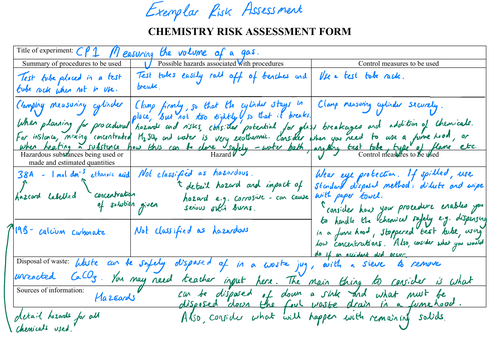 Exemplar Risk Assessment
CHEMISTRY RISK ASSESSMENT FORM
Title of experiment: CP1 Measuring the volume of a gas.
Summary of procedures to be used
Possible hazards associated with procedures
Control measures to be used
Test tube placed in a test
tube rack when not in use.
Test tubes easily roll off of benches and
break
Use a test tube rack.
Clamping measuring cylinder
Clamp firmly, so that the cylinder stays in
place, but not too tightly so that it breaks.
Clamp measuring cylinder securely.
When planning for procedural hazards and risks, consider potential for glass breakages and addition of chemicals.
For instance, mixing concentrated H2SO4 and water is very exothermic. Consider when you need to use a fume hood, or
when heating a substance how this can be done safely - water bath, boiling test tube, type of flame etc
Hazardous substances being used or
made and estimated quantities
Hazard
Control measures to be used
38A - 1 mol dm-3 ethanoic acid
hazard labelled
concentration
of solution given
Not classified as hazardous.
detail hazard and impact of
hazard e.g. corrosive - can cause
serious skin burns.
Wear eye protection. If spilled, use
standard disposal method: dilute and wipe
with paper towel.
consider how your procedure enables you
to handle the chemical safely e.g. dispensing
in a fume hood, stoppered test tube, using
low concentrations. Also, consider what you would
do if an accident did occur.
19B - calcium carbonate
Not classified as hazardous
Disposal of waste: Waste can be safely disposed of in a waste jug, with a sieve to remove
unreacted CaCO3. You may need teacher input here. The main thing to consider is what
can be disposed of down a sink and what must be
disposed down the foul waste drain in a fumehood.
Also, consider what will happen with remaining solids.
Sources of information:
Hazcards
detail hazards for all
chemicals used.